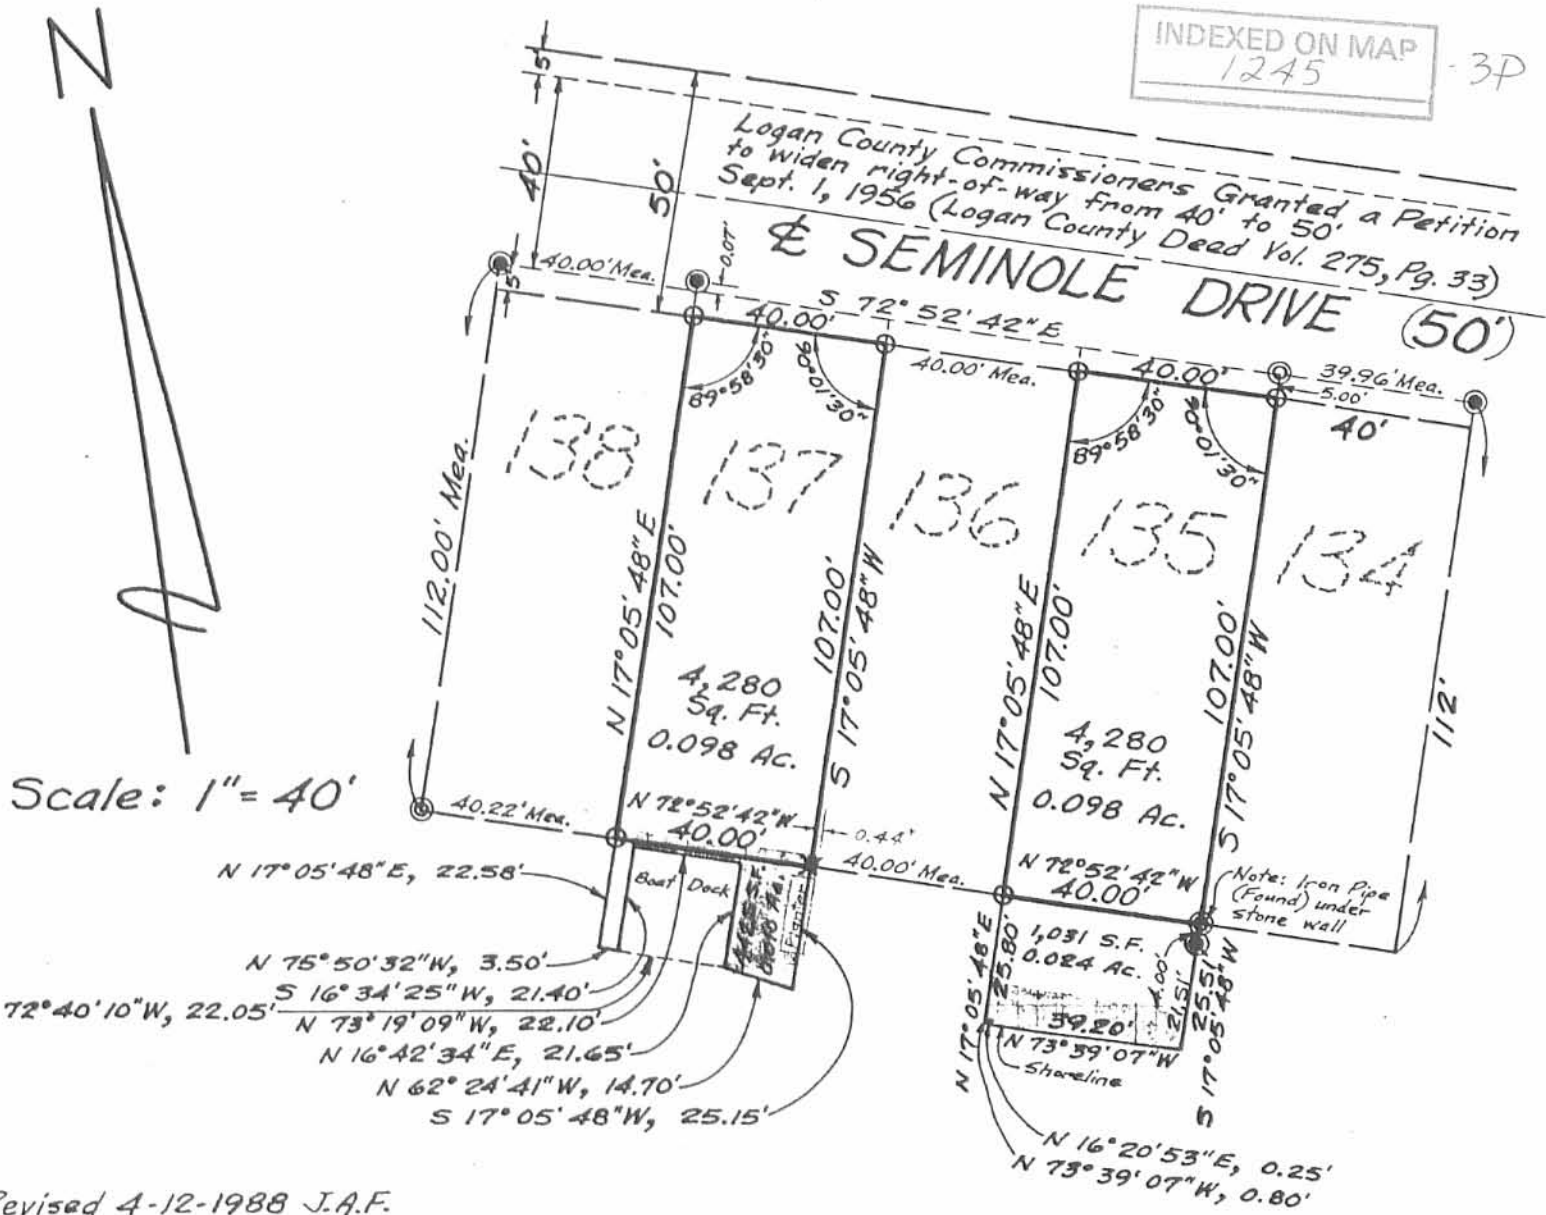 N
INDEXED ON MAP
1245
3P
5'
40'
50'
Logan County Commissioners Granted a Petition
to widen right-of-way from 40' to 50'
Sept. 1, 1956 (Logan County Deed Vol. 275, Pg. 33)
℄ SEMINOLE DRIVE (50')
0.07'
40.00' Mea.
5'
S 72° 52' 42" E
40.00'
40.00' Mea.
40.00'
39.96' Mea.
5.00'
40'
89° 58' 30"
90° 01' 30"
89° 58' 30"
90° 01' 30"
138
137
136
135
134
112.00' Mea.
N 17° 05' 48" E
107.00'
107.00'
S 17° 05' 48" W
N 17° 05' 48" E
107.00'
107.00'
S 17° 05' 48" W
112'
4,280
Sq. Ft.
0.098 Ac.
4,280
Sq. Ft.
0.098 Ac.
Scale: 1" = 40'
40.22' Mea.
N 72° 52' 42" W
40.00'
0.44'
40.00' Mea.
N 72° 52' 42" W
40.00'
Note: Iron Pipe
(Found) under
stone wall
Boat Dock
Planter
N 17° 05' 48" E, 22.58'
N 75° 50' 32" W, 3.50'
S 16° 34' 25" W, 21.40'
72° 40' 10" W, 22.05'
N 73° 19' 09" W, 22.10'
N 16° 42' 34" E, 21.65'
N 62° 24' 41" W, 14.70'
S 17° 05' 48" W, 25.15'
1,031 S.F.
0.024 Ac.
N 17° 05' 48" E
25.80'
4.00'
21.51'
25.51'
S 17° 05' 48" W
39.20'
N 73° 39' 07" W
Shoreline
N 16° 20' 53" E, 0.25'
N 73° 39' 07" W, 0.80'
Revised 4-12-1988 J.A.F.